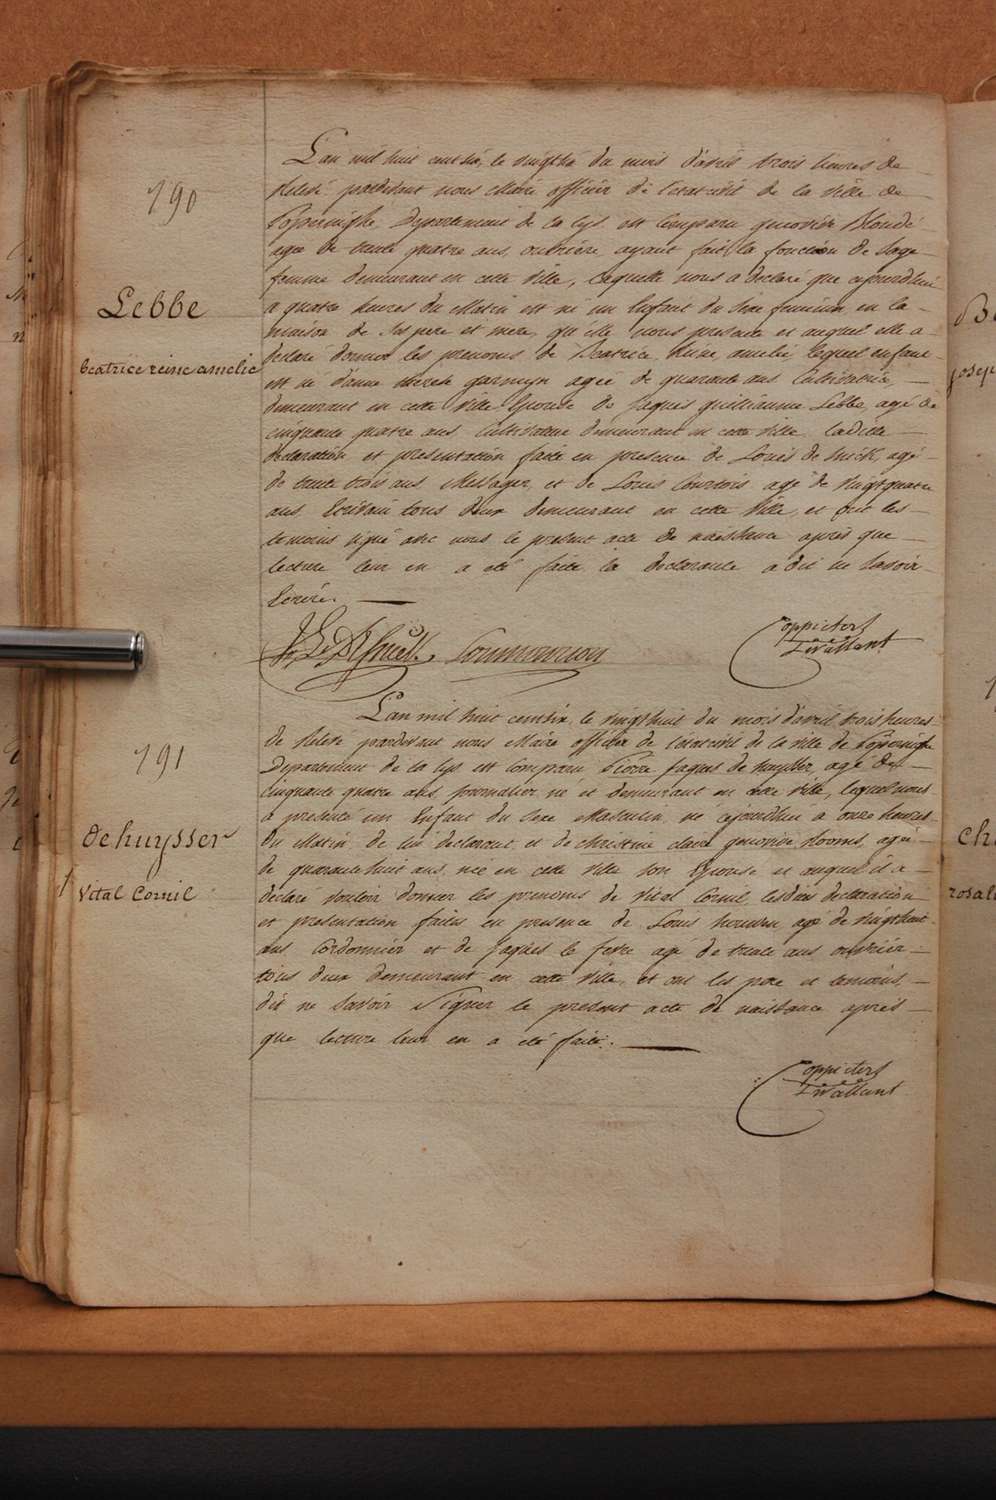 190
Lebbe
beatrice reine amelie
L'an mil huit cent six, le vingt six du mois d'avril trois heures de
relevé pardevant nous Maire officier de l'état civil de la ville de
Poperinghe Departement de la Lys est Comparu genoviéve Blondé
agée de trente quatre ans, ouvrière ayant fait la fonction de Sage
femme demeurant en cette ville, laquelle nous a declaré que cejourdhui
a quatre heures du Matin est né un Enfant du Sexe feminin en la
maison de Ses pere et mere, qu'elle nous presente et auquel elle a
declaré donner les prenoms de Beatrice Reine amelie lequel enfant
est né d'anne therese garmyn agée de quarante ans Cultivatrice,
demeurant en cette ville Epouse de Jaques guilliaume Lebbe, agé de
cinquante quatre ans Cultivateur demeurant en cette ville ladite
declaration et presentation faite en presence de Louis de agé
de trente trois ans Messager, et de Louis Courtois agé de vingt quatre
ans Ecrivain tous deux demeurant en cette Ville, et ont les
temoins signé avec nous le présent acte de naissance après que
lecture leur en a été faite, la declarante a dit ne Savoir
Ecrire.
Coppieters
Stevallant
191
dehuysser
Vital Cornil
L'an mil huit cent six, le vingt huit du mois d'avril trois heures
de Relevé pardevant nous Maire officier de l'état civil de la ville de Poperinghe
Departement de la Lys est Comparu Pierre Jaques de huysser, agé de
cinquante quatre ans, journalier né et demeurant en cette ville, lequel nous
a presenté un Enfant du Sexe Masculin, né cejourdhui à onze heures
du Matin de lui declarant et de christine clare genoviéve agée
de quarante huit ans, née en cette ville son Epouse et auquel il a
declaré vouloir donner les prenoms de Vital Cornil, lesdites declaration
et presentation faites en presence de Louis agé de vingt huit
ans Cordonnier et de Jaques le fevre agé de trente ans ouvrier
tous deux demeurant en cette ville, et ont les pere et temoins,
dit ne Savoir Signer le present acte de naissance après
que lecture leur en a été faite.
Coppieters
Stevallant